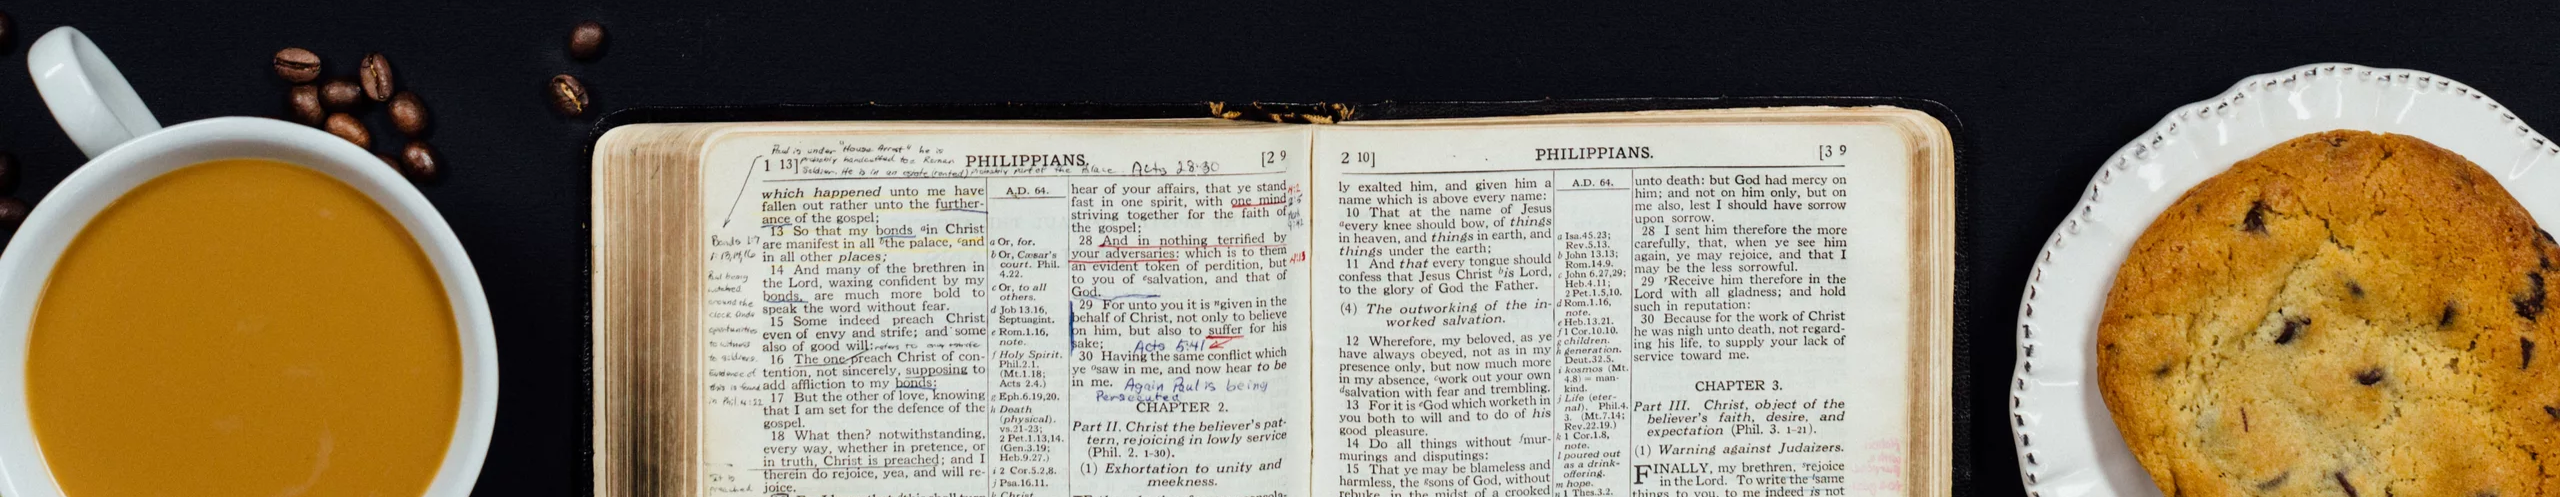 Paul is under "House Arrest" he is
probably handcuffed to a Roman
soldier. He is in an estate (rented) Probably part of the Palace Acts 28:30
1 13] PHILIPPIANS. [2 9
which happened unto me have
fallen out rather unto the further-
ance of the gospel;
13 So that my bonds ain Christ
are manifest in all bthe palace, cand
in all other places;
14 And many of the brethren in
the Lord, waxing confident by my
bonds, are much more bold to
speak the word without fear.
15 Some indeed preach Christ
even of envy and strife; and some
also of good will:
16 The one preach Christ of con-
tention, not sincerely, supposing to
add affliction to my bonds:
17 But the other of love, knowing
that I am set for the defence of the
gospel.
18 What then? notwithstanding,
every way, whether in pretence, or
in truth, Christ is preached; and I
therein do rejoice, yea, and will re-
joice.
Bonds 1:7
1:13,14,16
Paul being
watched
around the
clock
opportunities
to witness
to soldiers.
Evidence of
this is found
in Phil 4:22
A.D. 64.
a Or, for.
b Or, Cæsar's
court. Phil.
4.22.
c Or, to all
others.
d Job 13.16,
Septuagint.
e Rom.1.16,
note.
f Holy Spirit.
Phil.2.1,
(Mt.1.18;
Acts 2.4.)
g Eph.6.19,20.
h Death
(physical).
vs.21-23;
2 Pet.1.13,14.
(Gen.3.19;
Heb.9.27.)
i 2 Cor.5.2,8.
j Psa.16.11.
k Christ
hear of your affairs, that ye stand
fast in one spirit, with one mind
striving together for the faith of
the gospel;
28 And in nothing terrified by
your adversaries: which is to them
an evident token of perdition, but
to you of esalvation, and that of
God.
29 For unto you it is ngiven in the
behalf of Christ, not only to believe
on him, but also to suffer for his
sake; Acts 5:41
30 Having the same conflict which
ye osaw in me, and now hear to be
in me. Again Paul is being
Persecuted
CHAPTER 2.
Part II. Christ the believer's pat-
tern, rejoicing in lowly service
(Phil. 2. 1-30).
(1) Exhortation to unity and
meekness.
2 10] PHILIPPIANS. [3 9
ly exalted him, and given him a
name which is above every name:
10 That at the name of Jesus
aevery knee should bow, of things
in heaven, and things in earth, and
things under the earth;
11 And that every tongue should
confess that Jesus Christ bis Lord,
to the glory of God the Father.
(4) The outworking of the in-
worked salvation.
12 Wherefore, my beloved, as ye
have always obeyed, not as in my
presence only, but now much more
in my absence, cwork out your own
dsalvation with fear and trembling.
13 For it is eGod which worketh in
you both to will and to do of his
good pleasure.
14 Do all things without fmur-
murings and disputings:
15 That ye may be blameless and
harmless, the gsons of God, without
rebuke, in the midst of a crooked
A.D. 64.
a Isa.45.23;
Rev.5.13.
b John 13.13;
Rom.14.9.
c John 6.27,29;
Heb.4.11;
2 Pet.1.5,10.
d Rom.1.16,
note.
e Heb.13.21.
f 1 Cor.10.10.
g children.
h generation.
Deut.32.5.
i kosmos (Mt.
4.8) = man-
kind.
j Life (eter-
nal). Phil.4.
3. (Mt.7.14;
Rev.22.19.)
k 1 Cor.1.8,
note.
l poured out
as a drink-
offering.
m hope.
n 1 Thes.3.2.
unto death: but God had mercy on
him; and not on him only, but on
me also, lest I should have sorrow
upon sorrow.
28 I sent him therefore the more
carefully, that, when ye see him
again, ye may rejoice, and that I
may be the less sorrowful.
29 rReceive him therefore in the
Lord with all gladness; and hold
such in reputation:
30 Because for the work of Christ
he was nigh unto death, not regard-
ing his life, to supply your lack of
service toward me.
CHAPTER 3.
Part III. Christ, object of the
believer's faith, desire, and
expectation (Phil. 3. 1-21).
(1) Warning against Judaizers.
FINALLY, my brethren, srejoice
in the Lord. To write the tsame
things to you, to me indeed is not